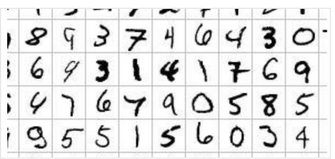 8 9 3 7 4 6 4 3 0
6 9 3 1 4 1 7 6 9
4 7 6 7 9 0 5 8 5
9 5 5 1 5 6 0 3 4